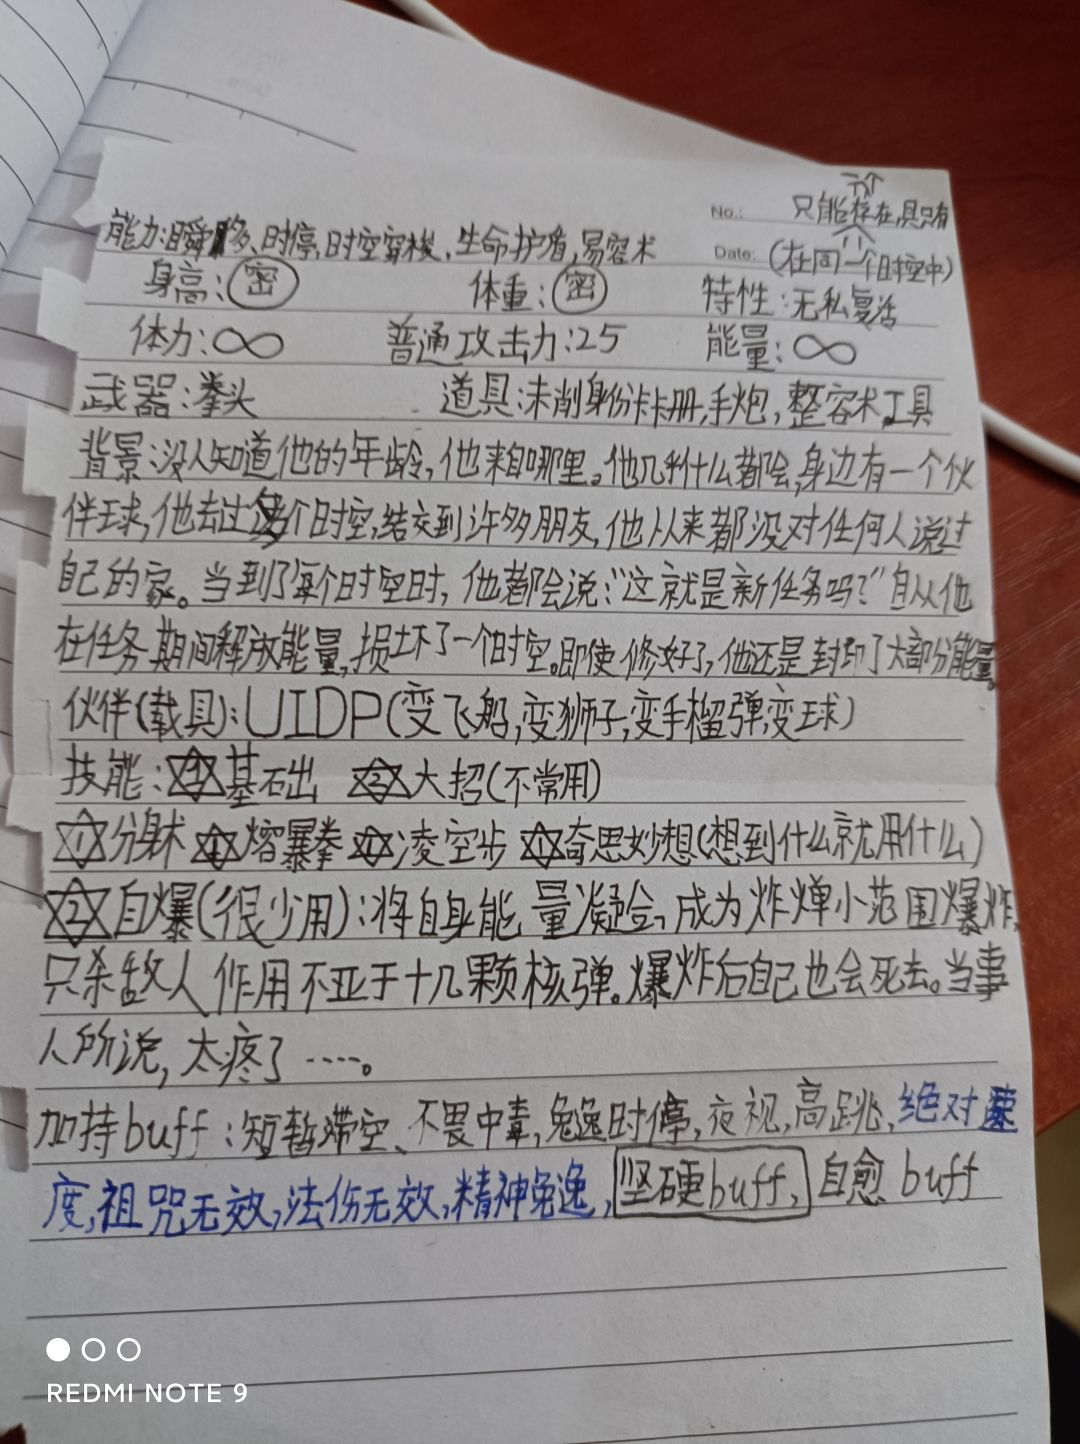 No.: 只能存在,且只有
能力:瞬移、时停,时空穿梭,生命护盾,易容术
Date: (在同一个时空中)
身高:密 体重:密 特性:无私复活
体力:∞ 普通攻击力:25 能量:∞
武器:拳头 道具:未削身份卡卡册,手炮,整容术工具
背景:没人知道他的年龄,他来自哪里。他几乎什么都会,身边有一个伙
伴球,他去过多个时空,结交到许多朋友,他从来都没对任何人说过
自己的家。当到了每个时空时,他都会说:“这就是新任务吗?”自从他
在任务期间释放能量,损坏了一个时空。即使修好了,他还是封印了大部分能量。
伙伴(载具):UIDP(变飞船,变狮子,变手榴弹,变球)
技能:1基础出 2大招(不常用)
1分身术 1熔暴拳 1凌空步 1奇思妙想(想到什么就用什么)
2自爆(很少用):将自身能量凝合,成为炸弹小范围爆炸,
只杀敌人作用不亚于十几颗核弹。爆炸后自己也会死去。当事
人所说,太疼了……。
加持buff:短暂滞空、不畏中毒,免逸时停,夜视,高跳,绝对速
度,祖咒无效,法伤无效,精神免逸,坚硬buff,自愈buff
REDMI NOTE 9